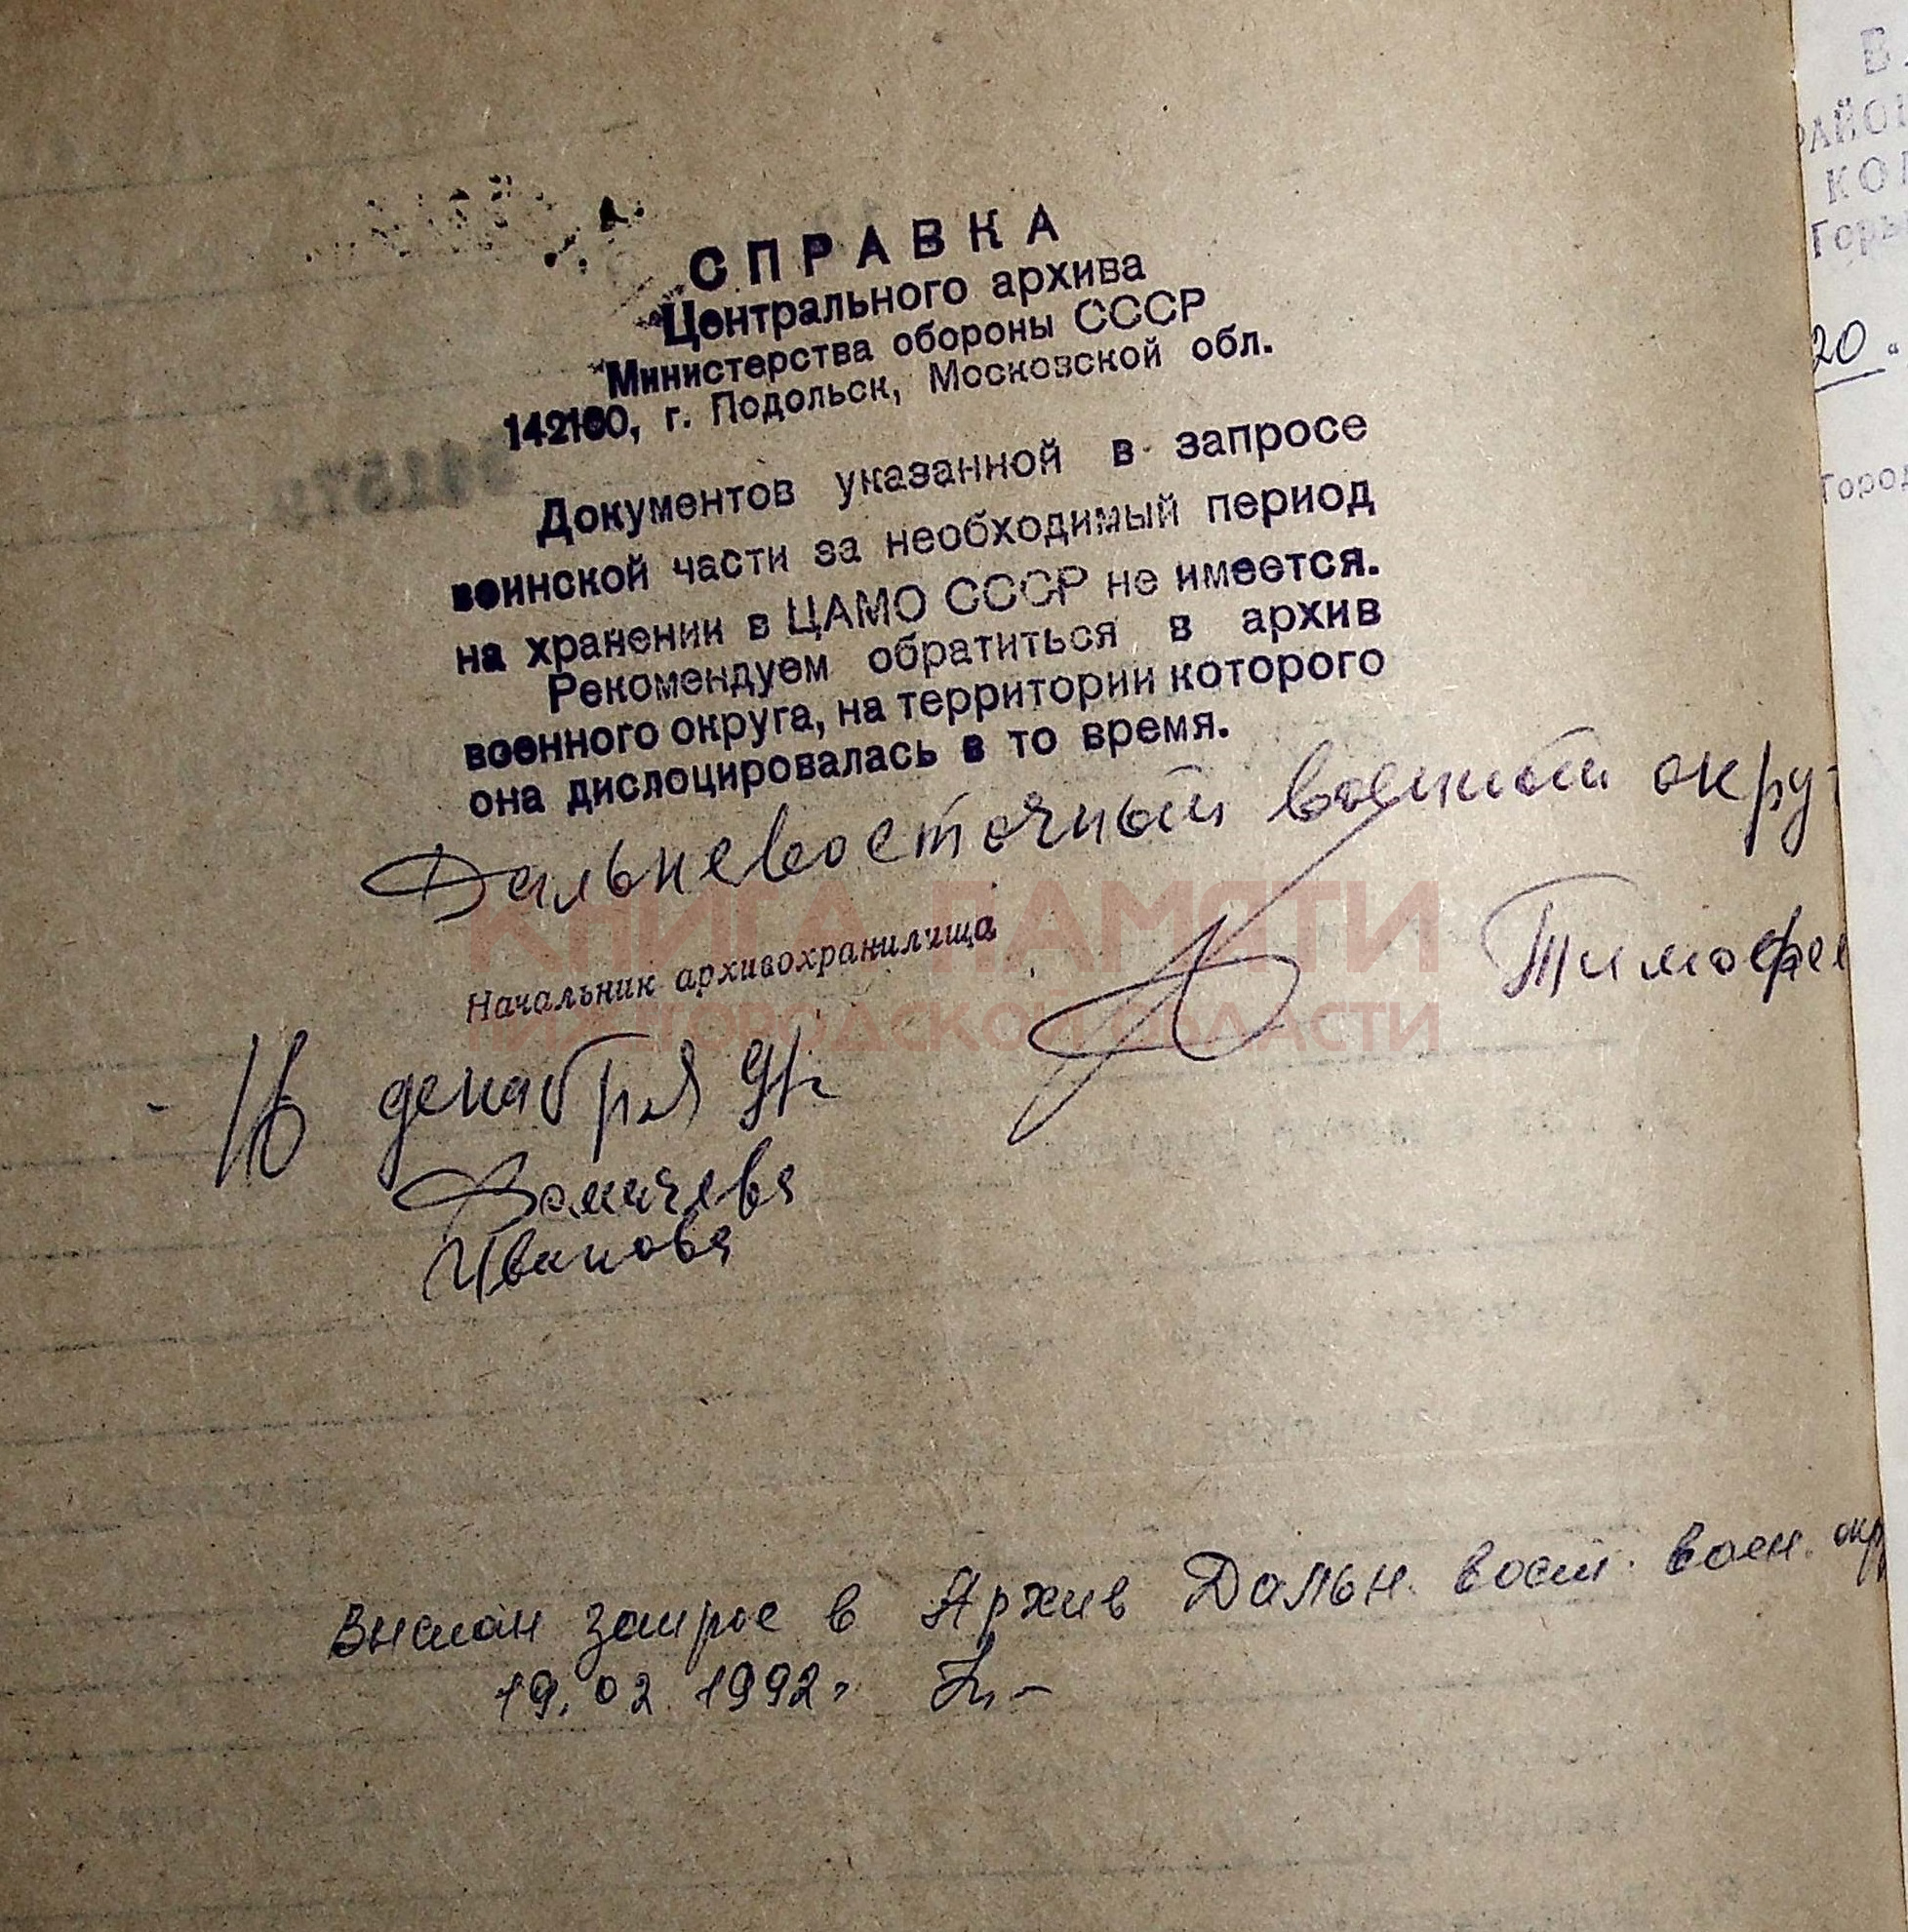 СПРАВКА
Центрального архива
Министерства обороны СССР
142100, г. Подольск, Московской обл.
Документов указанной в запросе
воинской части за необходимый период
на хранении в ЦАМО СССР не имеется.
Рекомендуем обратиться в архив
военного округа, на территории которого
она дислоцировалась в то время.
Дальневосточный военный окру-
КНИГА ПАМЯТИ
Начальник архивохранилища
Тимофее
НИЖЕГОРОДСКОЙ ОБЛАСТИ
16 декабря 91г
Иванова
Выслан запрос в Архив Дальн. вост. воен. окр
19.02.1992г
В
РАЙО
КО
Горь
20
Город